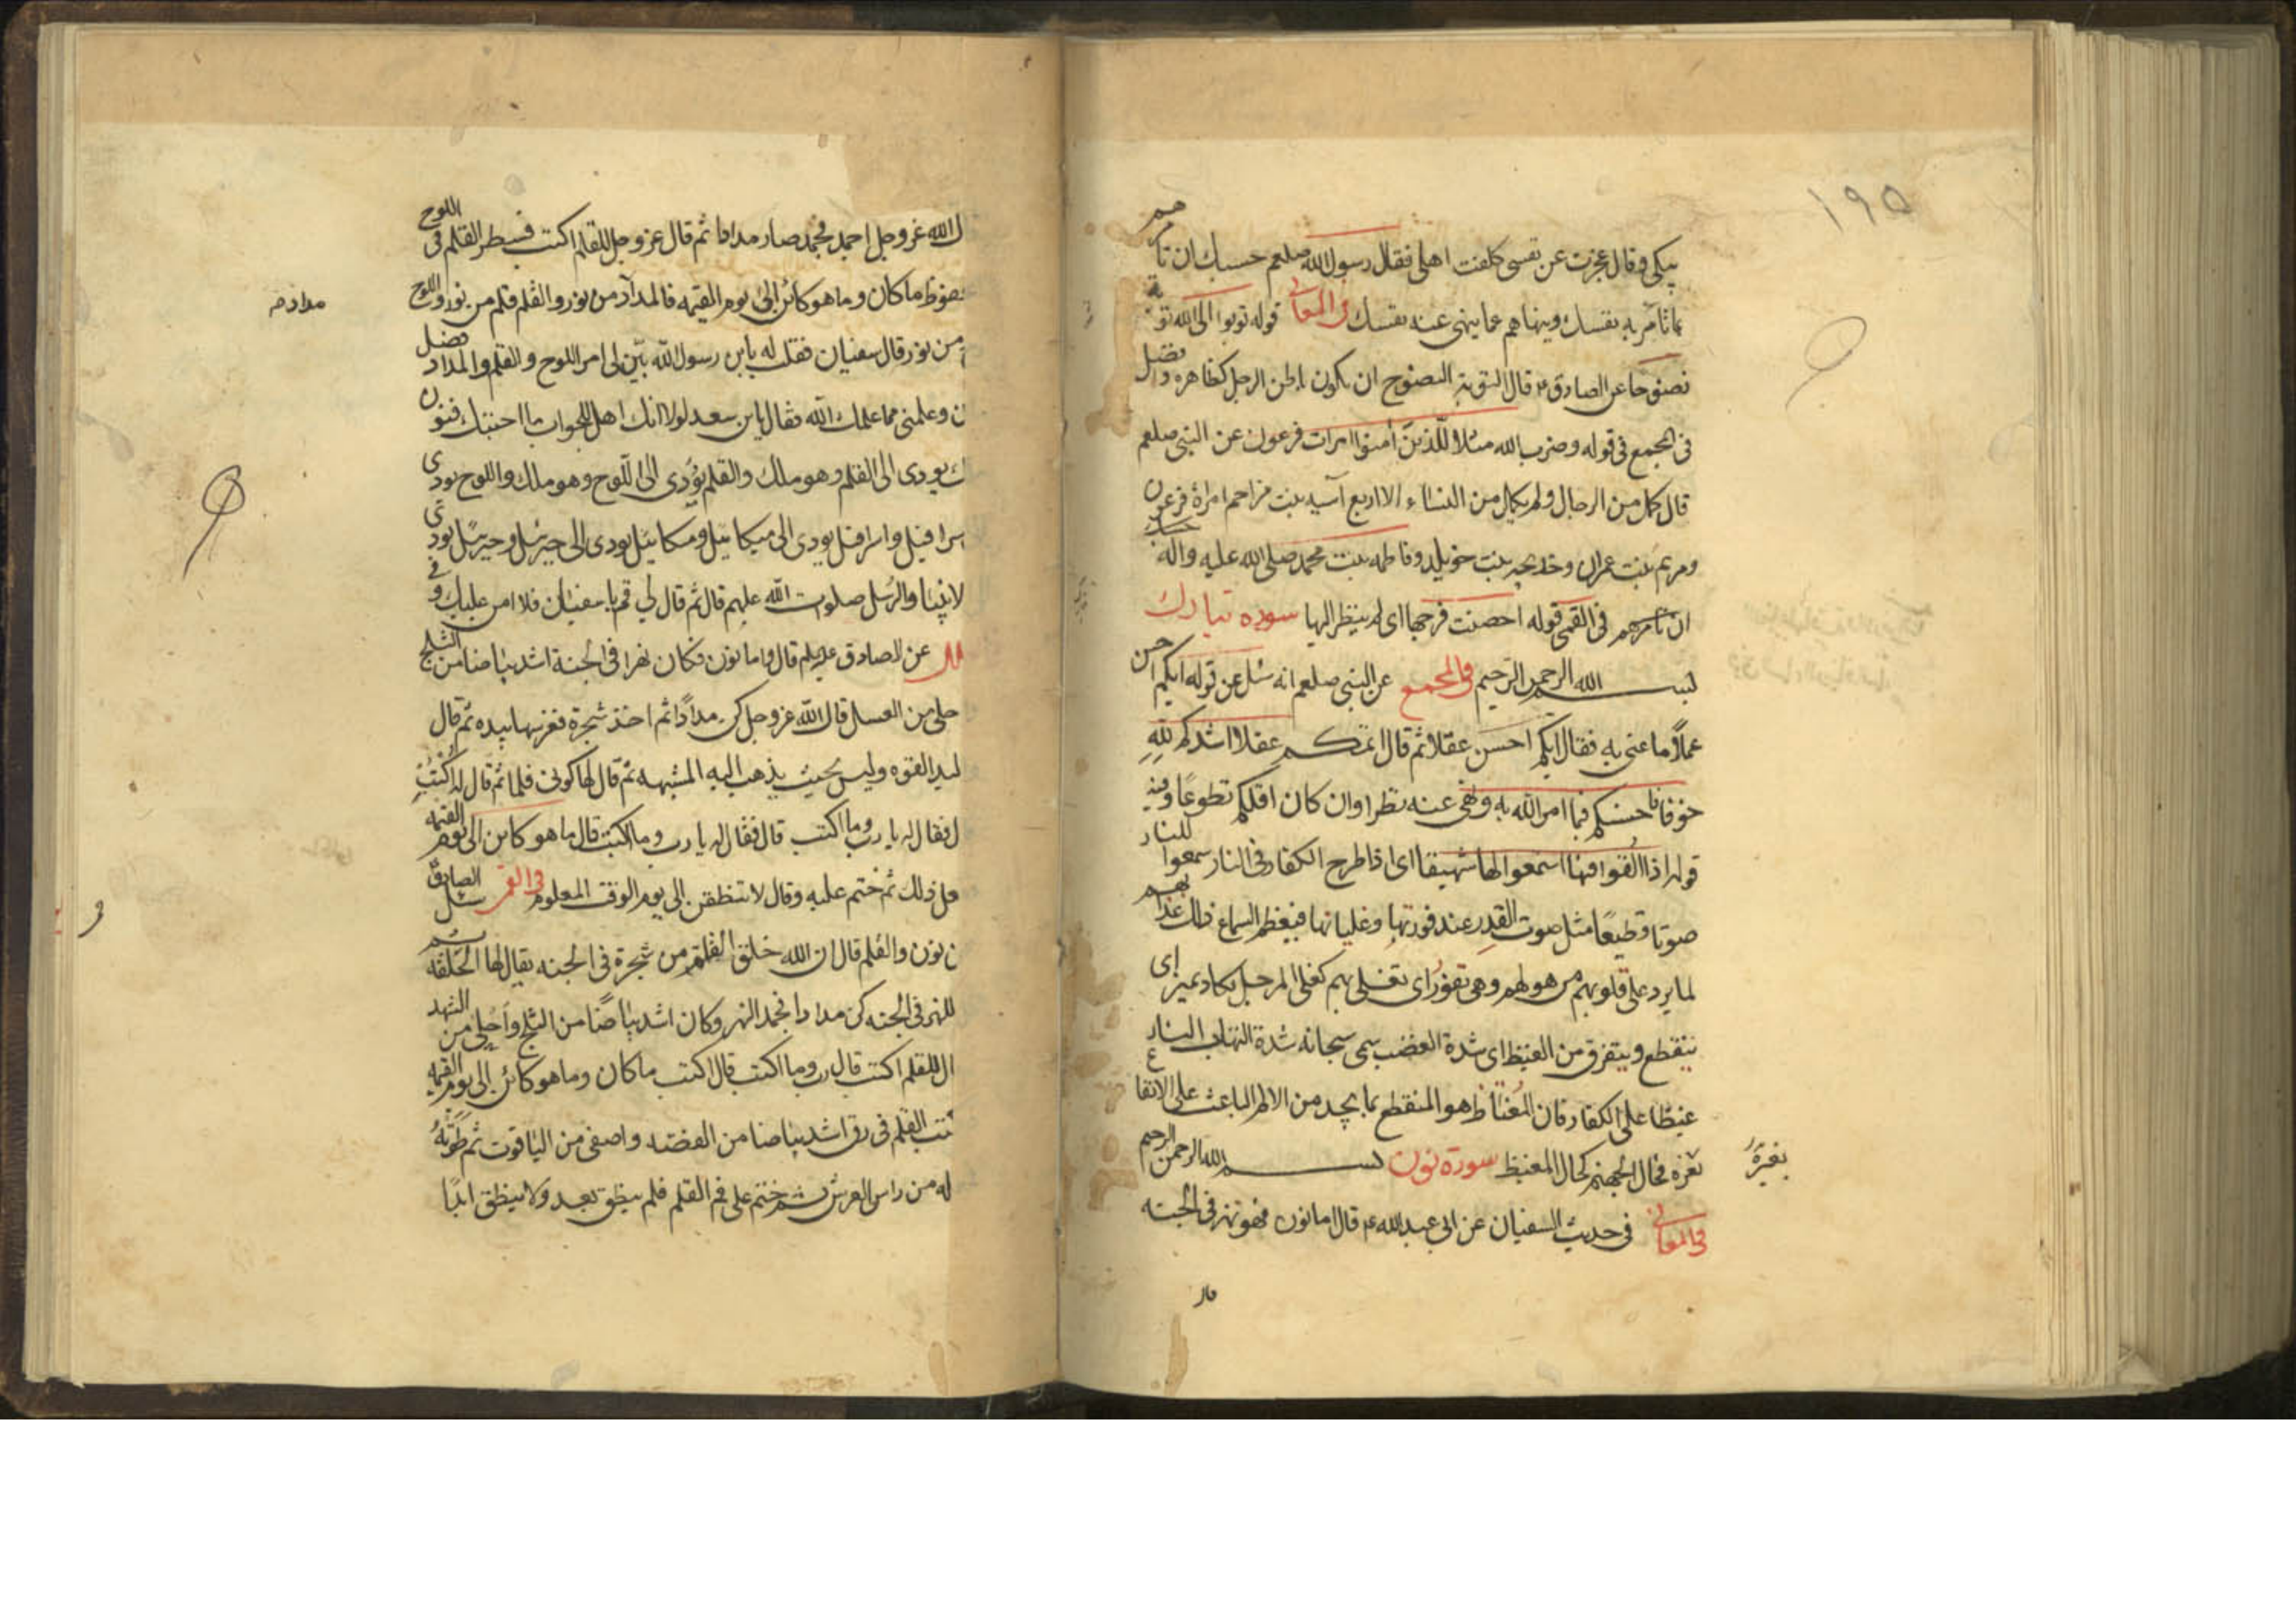 ١٩٥
يبكي وقال عجزت عن نفسي كلفت اهلي فقال رسول الله صلعم حسبك ان تامرهم
بما تامر به نفسك وينهاهم عما ينهى عنه نفسك في المعاني قوله توبوا الى الله توبة
نصوحا عن الصادق ع قال التوبة النصوح ان يكون باطن الرجل كظاهره وافضل
في المجمع في قوله وضرب الله مثلا للذين امنوا امرات فرعون عن النبي صلعم
قال كمل من الرجال ولم يكمل من النساء الا اربع آسيه بنت مزاحم امراة فرعون
ومريم بنت عمران وخديجه بنت خويلد وفاطمه بنت محمد صلى الله عليه واله
ان تامرهم في القمي قوله احصنت فرجها اى لم ينظر اليها سوره تبارك
بسم الله الرحمن الرحيم في المجمع عن النبي صلعم انه سئل عن قوله ايكم احسن
عملا ما عنى به فقال ايكم احسن عقلا ثم قال اتمكم عقلا اشدكم لله
خوفا واحسنكم فيما امر الله به ونهى عنه نظرا وان كان اقلكم تطوعا وفيه
قوله اذا القوا فيها سمعوا لها شهيقا اى اذا طرح الكفار في النار سمعوا للنار
صوتا فظيعا مثل صوت القدر عند فورتها وغليانها فيعظم السماع ذلك عذابهم
لما يرد على قلوبهم من هولهم وهى تفور اى تغلى بهم كغلى المرجل تكاد تميز اى
تنقطع ويتفرق من الغيظ اى شدة الغضب سمى سبحانه شدة التهاب النار
غيظا على الكفار فان المغتاظ هو المنقطع بما يجد من الالم الباعث على الايقاع
بغيره فحال الجهنم كحال المغيظ سورة نون بسم الله الرحمن الرحيم
بغيرَهُ
في المعاني في حديث السفيان عن ابي عبد الله ع قال اما نون فهو نهر في الجنه
قال
ل الله عز وجل اجمد فجمد صار مدادا ثم قال عز وجل للقلم اكتب فسطر القلم في اللوح
محفوظ ما كان وما هو كائن الى يوم القيمه فالمداد من نور والقلم قلم من نور واللوح
مداد م
من نور قال سفيان فقلت له يابن رسول الله بين لى امر اللوح والقلم والمداد فضل
ن وعلمني مما علمك الله فقال يابن سعد لولا انك اهل للجواب ما اجبتك فنون
ك يودى الى القلم وهو ملك والقلم يؤدى الى اللوح وهو ملك واللوح يودى
سرافيل واسرافيل يودى الى ميكائيل وميكائيل يودى الى جبرئيل وجبرئيل يودى
لانبيا والرسل صلوات الله عليهم قال ثم قال لي قم يا سفيان فلا امن عليك وفي
عن الصادق عليلم قال واما نون فكان نهرا في الجنة اشد بياضا من الثلج
حلى من العسل قال الله عز وجل كن مدادا ثم اخذ شجرة فغرسها بيده ثم قال
ليد القوه وليس بحيث يذهب اليه المشبهه ثم قال لها كوني قلما ثم قال له اكتب
ل فقال له يا رب وما اكتب قال فقال له يا رب وما اكتب قال ما هو كاين الى يوم القيمه
عل ذلك ثم ختم عليه وقال لا تنطقن الى يوم الوقت المعلوم في القمي سئل الصادق
ن نون والقلم قال ان الله خلق القلم من شجرة في الجنه يقال لها الخلد ثم
للنهر في الجنه كن مدادا فجمد النهر وكان اشد بياضا من الثلج واحلى من الشهد
ال للقلم اكتب قال رب وما اكتب قال اكتب ما كان وما هو كائن الى يوم القيمه
تب القلم في رق اشد بياضا من الفضه واصفى من الياقوت ثم طوته
له من راس العرش ثم ختم على فم القلم فلم ينطق بعد ولا ينطق ابدا